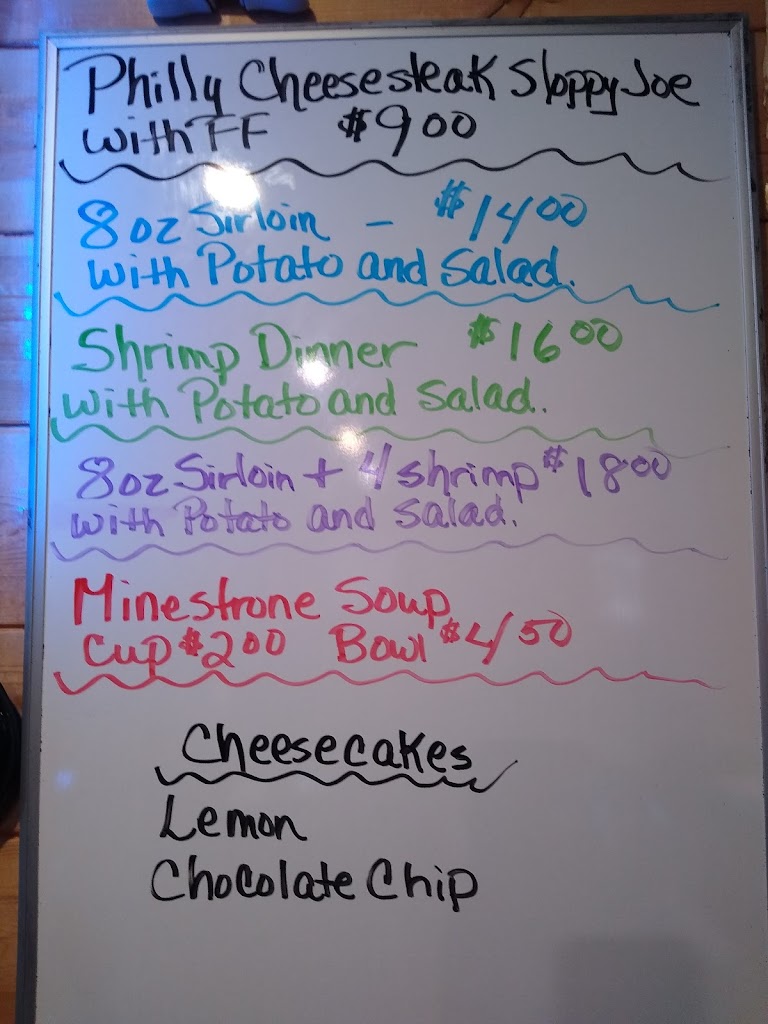 Philly Cheesesteak Sloppy Joe
with FF $9 00
8oz Sirloin - $14 00
with Potato and Salad.
Shrimp Dinner $16 00
with Potato and Salad.
8oz Sirloin + 4 shrimp $18 00
with Potato and Salad.
Minestrone Soup
Cup $2 00 Bowl $4 50
Cheesecakes
Lemon
Chocolate Chip